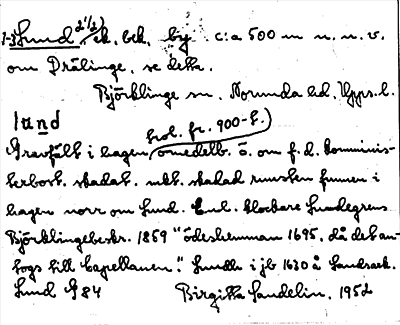 1-3 Lund 2 1/2), ek. bek. by c:a 500 m n. n. v.
om Drälinge, se detta.
Björklinge sn. Norunda hd. Upps. l.
lund
trol. fr. 900-t.)
Gravfält i hagen omedelb. ö. om f. d. komminis-
terbost. skadat. ukt. skadad runsten funnen i
hagen norr om Lund. Enl. klockare Lundegrens
Björklingebeskr. 1859 "ödeshemman 1695, då det an-
togs till Capellanen." Lundh i jb 1630 å Landsark.
Lund G 84 Birgitta Sandelin. 1952